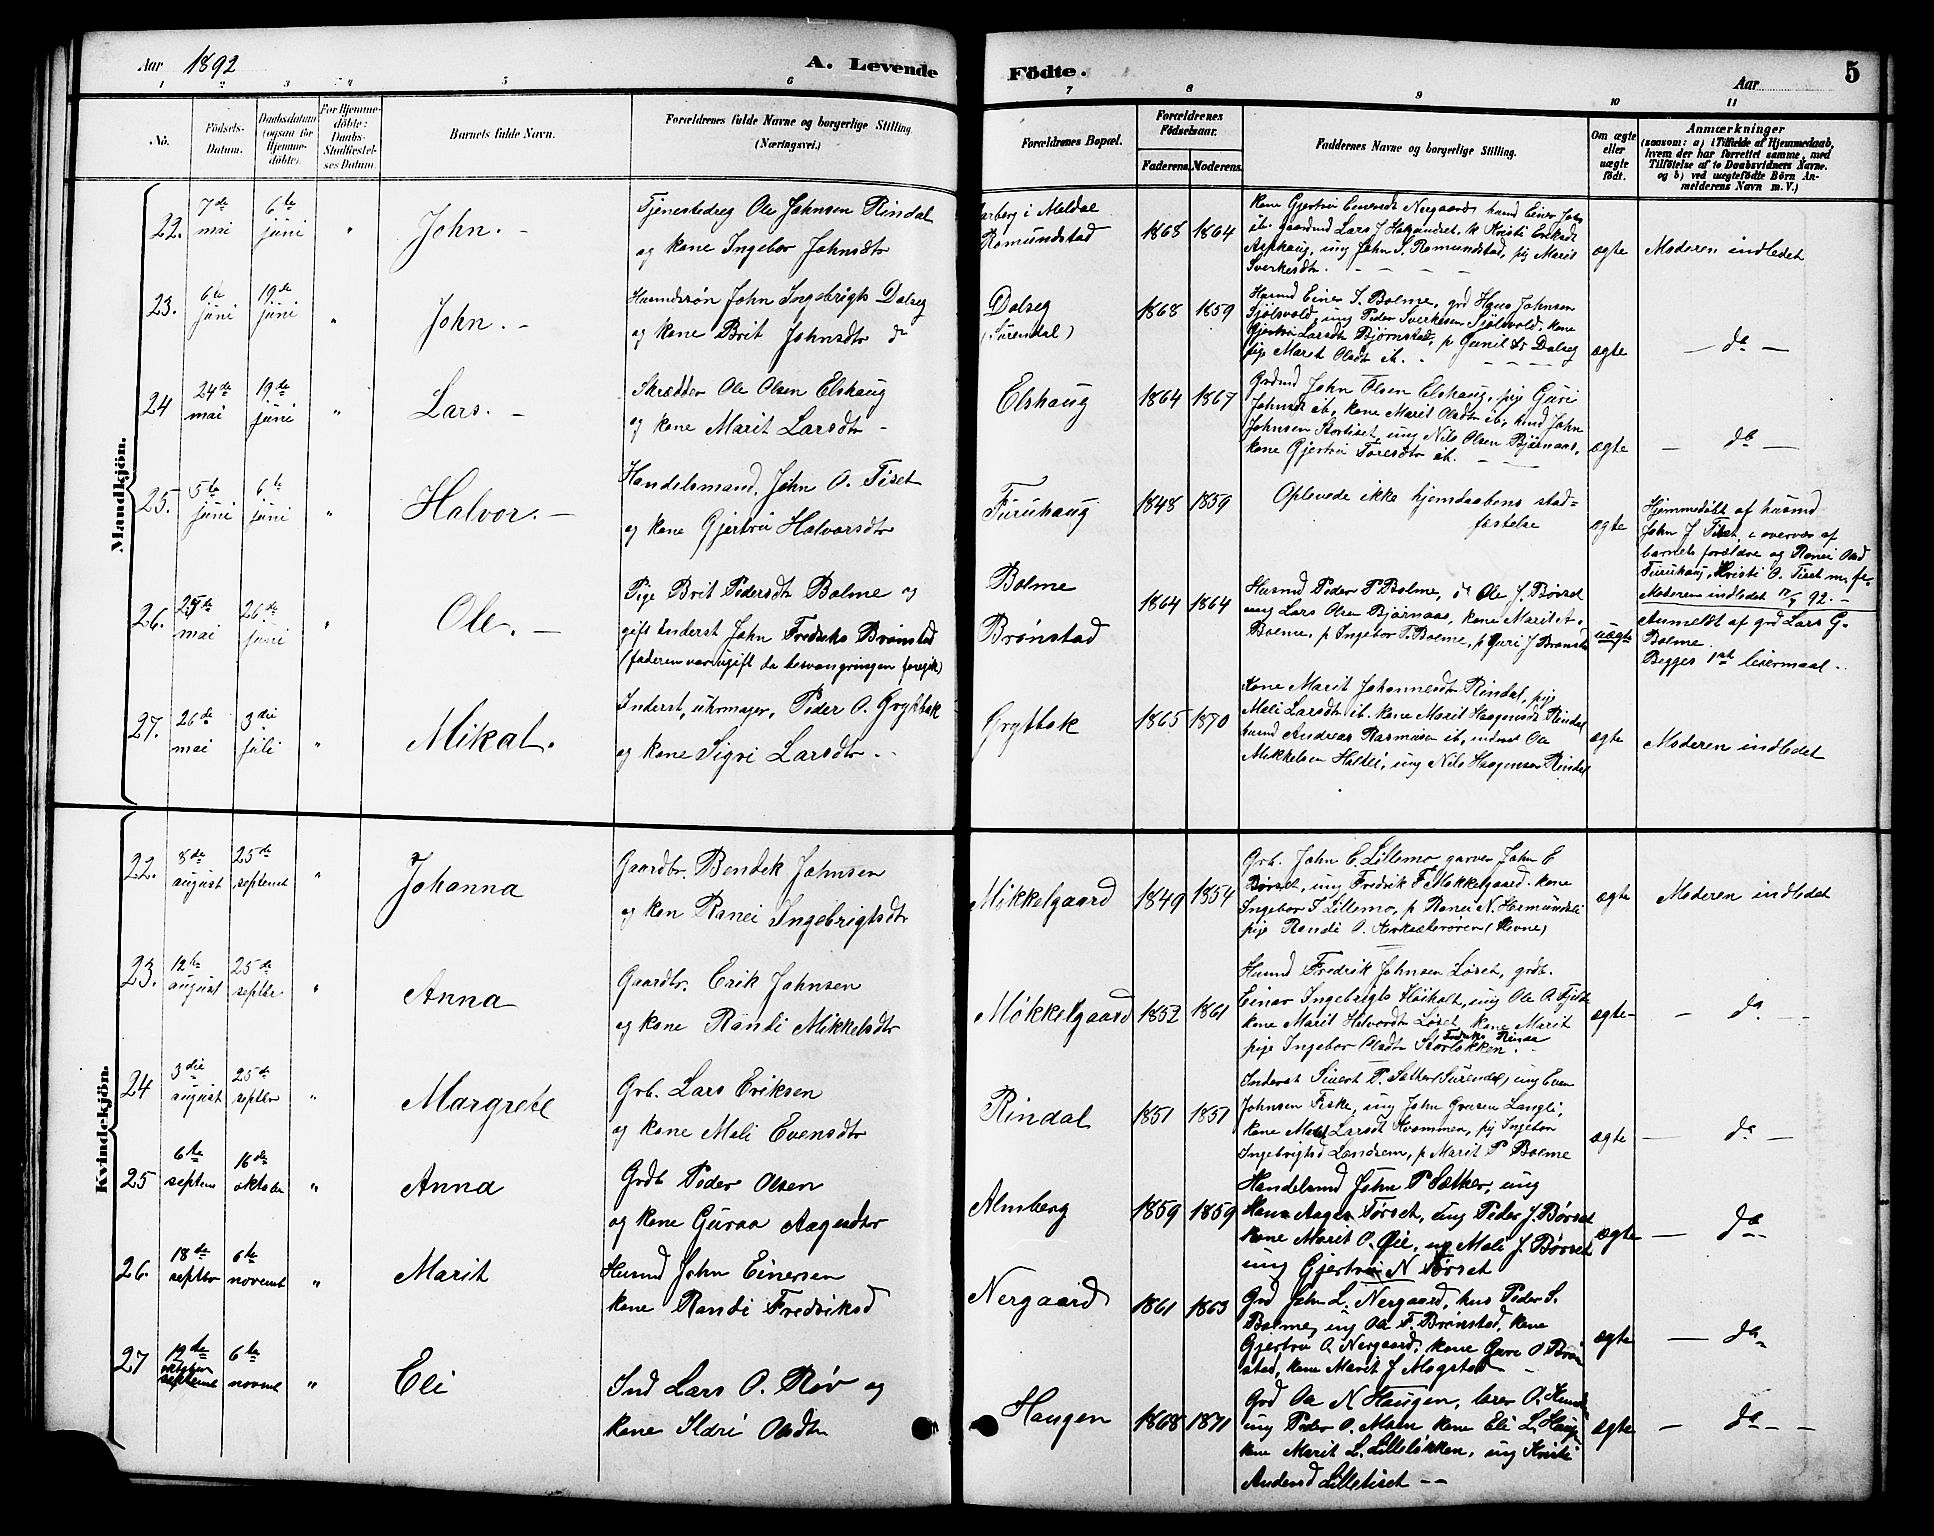 Aar 1892
A. Levende
Födte.
Aar
5
1 2 3 4 5 6 7 8 9 10 11
No.
Födsels-
Datum.
Daabsdatum
(ogsaa for
Hjemme-
döbte).
For Hjemme-
döbte:
Daabs-
Stadfæstel-
ses Datum.
Barnets fulde Navn.
Forældrenes fulde Navne og borgerlige Stilling
(Næringsvei.)
Forældrenes Bopæl.
Forældrenes
Födselsaar.
Faderens. Moderens.
Faddernes Navne og borgerlige Stilling.
Om ægte
eller
uægte
födt.
Anmærkninger
(saasom: a) i Tilfælde af Hjemmedaab,
hvem der har forrettet samme, med
Tilföielse af to Daabsvidners Navne.
og b) ved uægtefödte Börn An-
melderens Navn m. V.)
Mandkjön.
22. 7de mai 6te juni " John. -
Tjenestedreg Ole Johnsen Rindal
og kone Ingebor Johnsdtr
i Meldal
Romundstad
1868 1864
kone Gjertru Einersdt Nergaard, husmd Einer John
ib. gaardmd Lars J Helgundset, k Kristi Eriksdt
Asphaug, ung John S. Romundstad, pig Marit
Sverkesdtr.
ægte
Moderen indledet
23. 6te juni 19de juni " John. -
Husmdssøn John Ingebrigts Dalseg
og kone Brit Johnsdtr do
Dalseg
(Surendal)
1868 1859
Husmd Einer S. Bolme, grd Hans Johnsen
Sjölsvold, ung Peder Sverkesen Sjölsvold, kone
Gjertru Larsdt Bjørnstad, p Gunil Dalseg
pige Maret Olsdt ib.
ægte
- do -
24 24de mai 19de juni " Lars. -
Skrædder Ole Olsen Elshaug
og kone Marit Larsdtr -
Elshaug
1864 1867
Grdmd John Olsen Elshaug, pig Guri
Johnsdt ib, kone Marit Olsdtr ib, husmd John
Johnsen Stortiset, ung Nils Olsen Bjørnaas,
kone Gjertru Toresdtr ib.
ægte
- do -
25. 5te juni 6te juni " Halvor. -
Handelsmand John O. Tiset
og kone Gjertru Halvorsdtr
Furuhaug
1848 1859
Oplevede ikke hjemdaabens stad-
fæstelse
ægte
Hjemmedöbt af husmd
John J Tiset, i overvær af
barnets forældre og Ranei Olsd
Furuhaug, Kristi O. Tiset m. fl.
Moderen indledet 92. -
26. 25de mai 26de juni " Ole. -
Pige Brit Pedersdt Bolme og
gift Inderst John Fredriks Brønstad
(faderen var ugift da besvangringen foregik)
Bolme
Brønstad
1864 1864
Husmd Peder P Bolme, do Ole J. Børset
ung Lars Olsen Bjørnaas, kone Marit
Bolme, p Ingebor P. Bolme, p Guri J Brønstad
uægte
Anmeldt af grd Lars G.
Bolme.
Begges 1ste leiermaal.
27. 26de mai 3die juli " Mikal.
Inderst, uhrmager, Peder O. Gryttbak
og kone Sigri Larsdtr. -
Gryttbak
1865 1870
Kone Marit Johannesdtr Rindal, pige
Mali Larsdtr ib. kone Marit Haagensdt Rindal
husmd Andreas Rasmusen ib, inderst Ola
Mikkelsen Haldli, ung Nils Haagensen Rindal
ægte
Moderen indledet
Kvindekjön.
22. 8de august 25de septembt " Johanna
Gaardbr. Bendek Johnsen
og kon Ranei Ingebrigtsdtr
Mökkelgaard
1849 1854
Grb. John E. Lillemo, garver John E
Børset, ung Fredrik F Møkkelgaard. kone
Ingebor I Lillemo, p Ranei N. Hermundsli
pige Randi O.
ægte
Moderen indledet
23. 12te august 25de septbr " Anna
Gaardbr. Erik Johnsen
og kone Randi Mikkelsdtr
Møkkelgaard
1852 1861
Husmd Fredrik Johnsen Løset, grdb.
Einar Ingebrigts Høiholt, ung Ole A.
kone Marit Halvorsdtr Løset, kone Marit
Fredriks Rinda
pige Ingebor Olsdtr Storløkken.
ægte
- do -
24 3die august 25de septbr " Margrete
Grb. Lars Eriksen
og kone Mali Evensdtr
Rindal
1851 1851
Inderst Sivert P. Sæther (Surendal), ung Even
Johnsen Fiske, ung John Gunsen Langli,
kone Mali Larsdt Kvammen, pig Ingebor
Ingebrigtsd Landsem, p Marit P Bolme
ægte
- do -
25 6te septem 16de oktobr " Anna
Grdb Peder Olsen
og kone Guroa Aagesdtr
Almberg
1859 1859
Handelsmd John P Sæther, ung
Hans Aages Tørset, ung Peder J. Børset
kone Marit O. Øie, ung Mali J. Børset
ung Gjertru N Tørset
ægte
- do -
26. 18de septbr 6te novemb " Marit
Husmd John Einersen
kone Randi Fredriksd
Nergaard
1861 1863
Grd John L. Nergaard, hus Peder S.
Bolme, ung Ola F. Brønstad, kone
Gjertru O Nergaard, kone Guri O Brøn
stad, kone Marit J Mogstad -
ægte
- do
27 12de oktober septemb 6te novemb " Eli
Ind Lars O. Røv og
kone Ildri Olsdtr
Haugen
1868 1871
Grd Ola N Haugen, lærer O.
ung Peder O. Moen kone Eli L. Haug
kone Marit L. Lilleløkken, ung Kristi
Andersd Lilletiset -
ægte
- do -